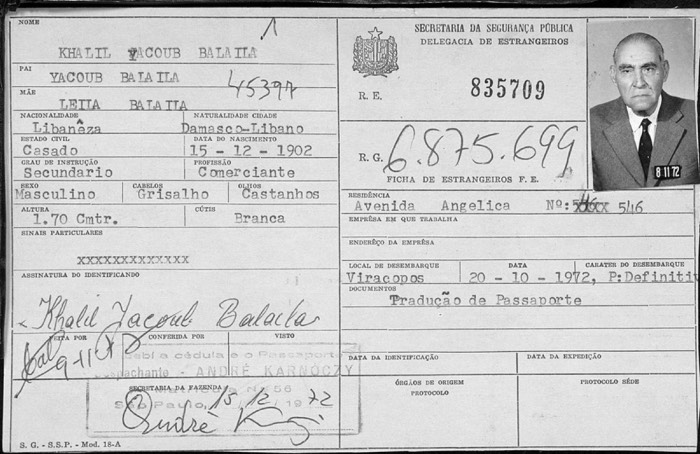 NOME
1
KHALIL YACOUB BALAILA
PAI
YACOUB BALAILA
45397
MÃE
LEILA BALAILA
NACIONALIDADE NATURALIDADE CIDADE
Libanêza Damasco-Libano
ESTADO CIVIL DATA DO NASCIMENTO
Casado 15 - 12 - 1902
GRAU DE INSTRUÇÃO PROFISSÃO
Secundario Comerciante
SEXO CABELOS OLHOS
Masculino Grisalho Castanhos
ALTURA CÚTIS
1.70 Cmtr. Branca
SINAIS PARTICULARES
XXXXXXXXXXXXX
ASSINATURA DO IDENTIFICANDO
Khalil Yacoub Balaila
FEITA POR CONFERIDA POR VISTO
a cédula e o Passaporte
pachante - ANDRÉ KARNOCZY
SECRETARIA DA FAZENDA
São Paulo, 15/12/1972
André
S. G. - S.S.P. - Mod. 18-A
SECRETARIA DA SEGURANÇA PÚBLICA
DELEGACIA DE ESTRANGEIROS
R. E. 835709
R. G. 6.875.699
FICHA DE ESTRANGEIROS F. E.
8 11 72
RESIDÊNCIA
Avenida Angelica Nº: 546
EMPRÊSA EM QUE TRABALHA
ENDERÊÇO DA EMPRÊSA
LOCAL DE DESEMBARQUE DATA CARATER DO DESEMBARQUE
Viracopos 20 - 10 - 1972, P:Definitiv
DOCUMENTOS
Tradução de Passaporte
DATA DA IDENTIFICAÇÃO DATA DA EXPEDIÇÃO
ÓRGÃOS DE ORIGEM PROTOCOLO SÉDE
PROTOCOLO